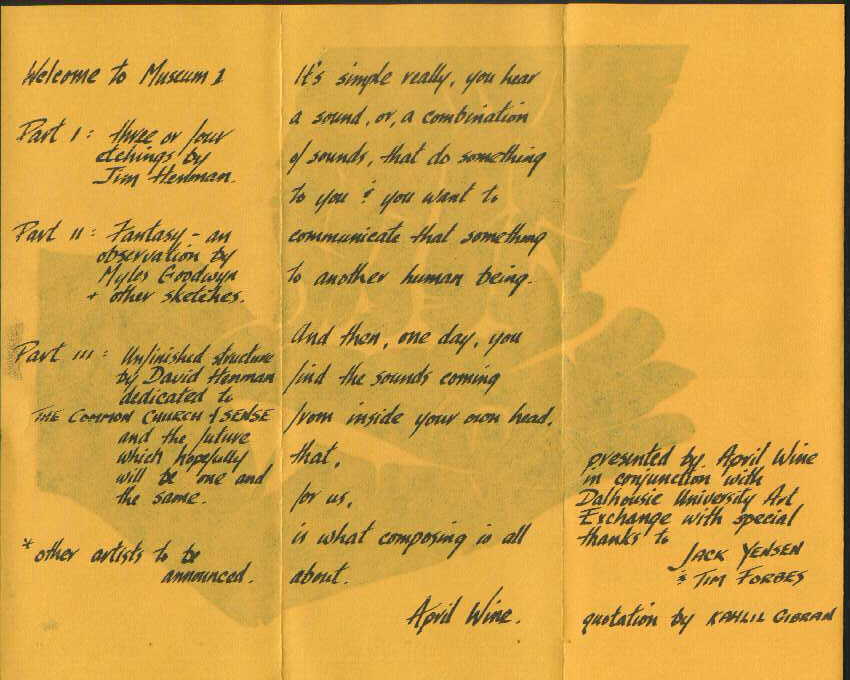 Welcome to Museum 1
Part I: three or four
etchings by
Jim Henman.
Part II: Fantasy - an
observation by
Myles Goodwyn
+ other sketches.
Part III: Unfinished structure
by David Henman
dedicated to
THE COMMON CHURCH of SENSE
and the future
which hopefully
will be one and
the same.
* other artists to be
announced.
It's simple really, you hear
a sound, or, a combination
of sounds, that do something
to you & you want to
communicate that something
to another human being.
And then, one day, you
find the sounds coming
from inside your own head,
that,
for us,
is what composing is all
about.
April Wine.
presented by April Wine
in conjunction with
Dalhousie University Art
Exchange with special
thanks to
JACK YENSEN
& TIM FORBES
quotation by KAHLIL GIBRAN